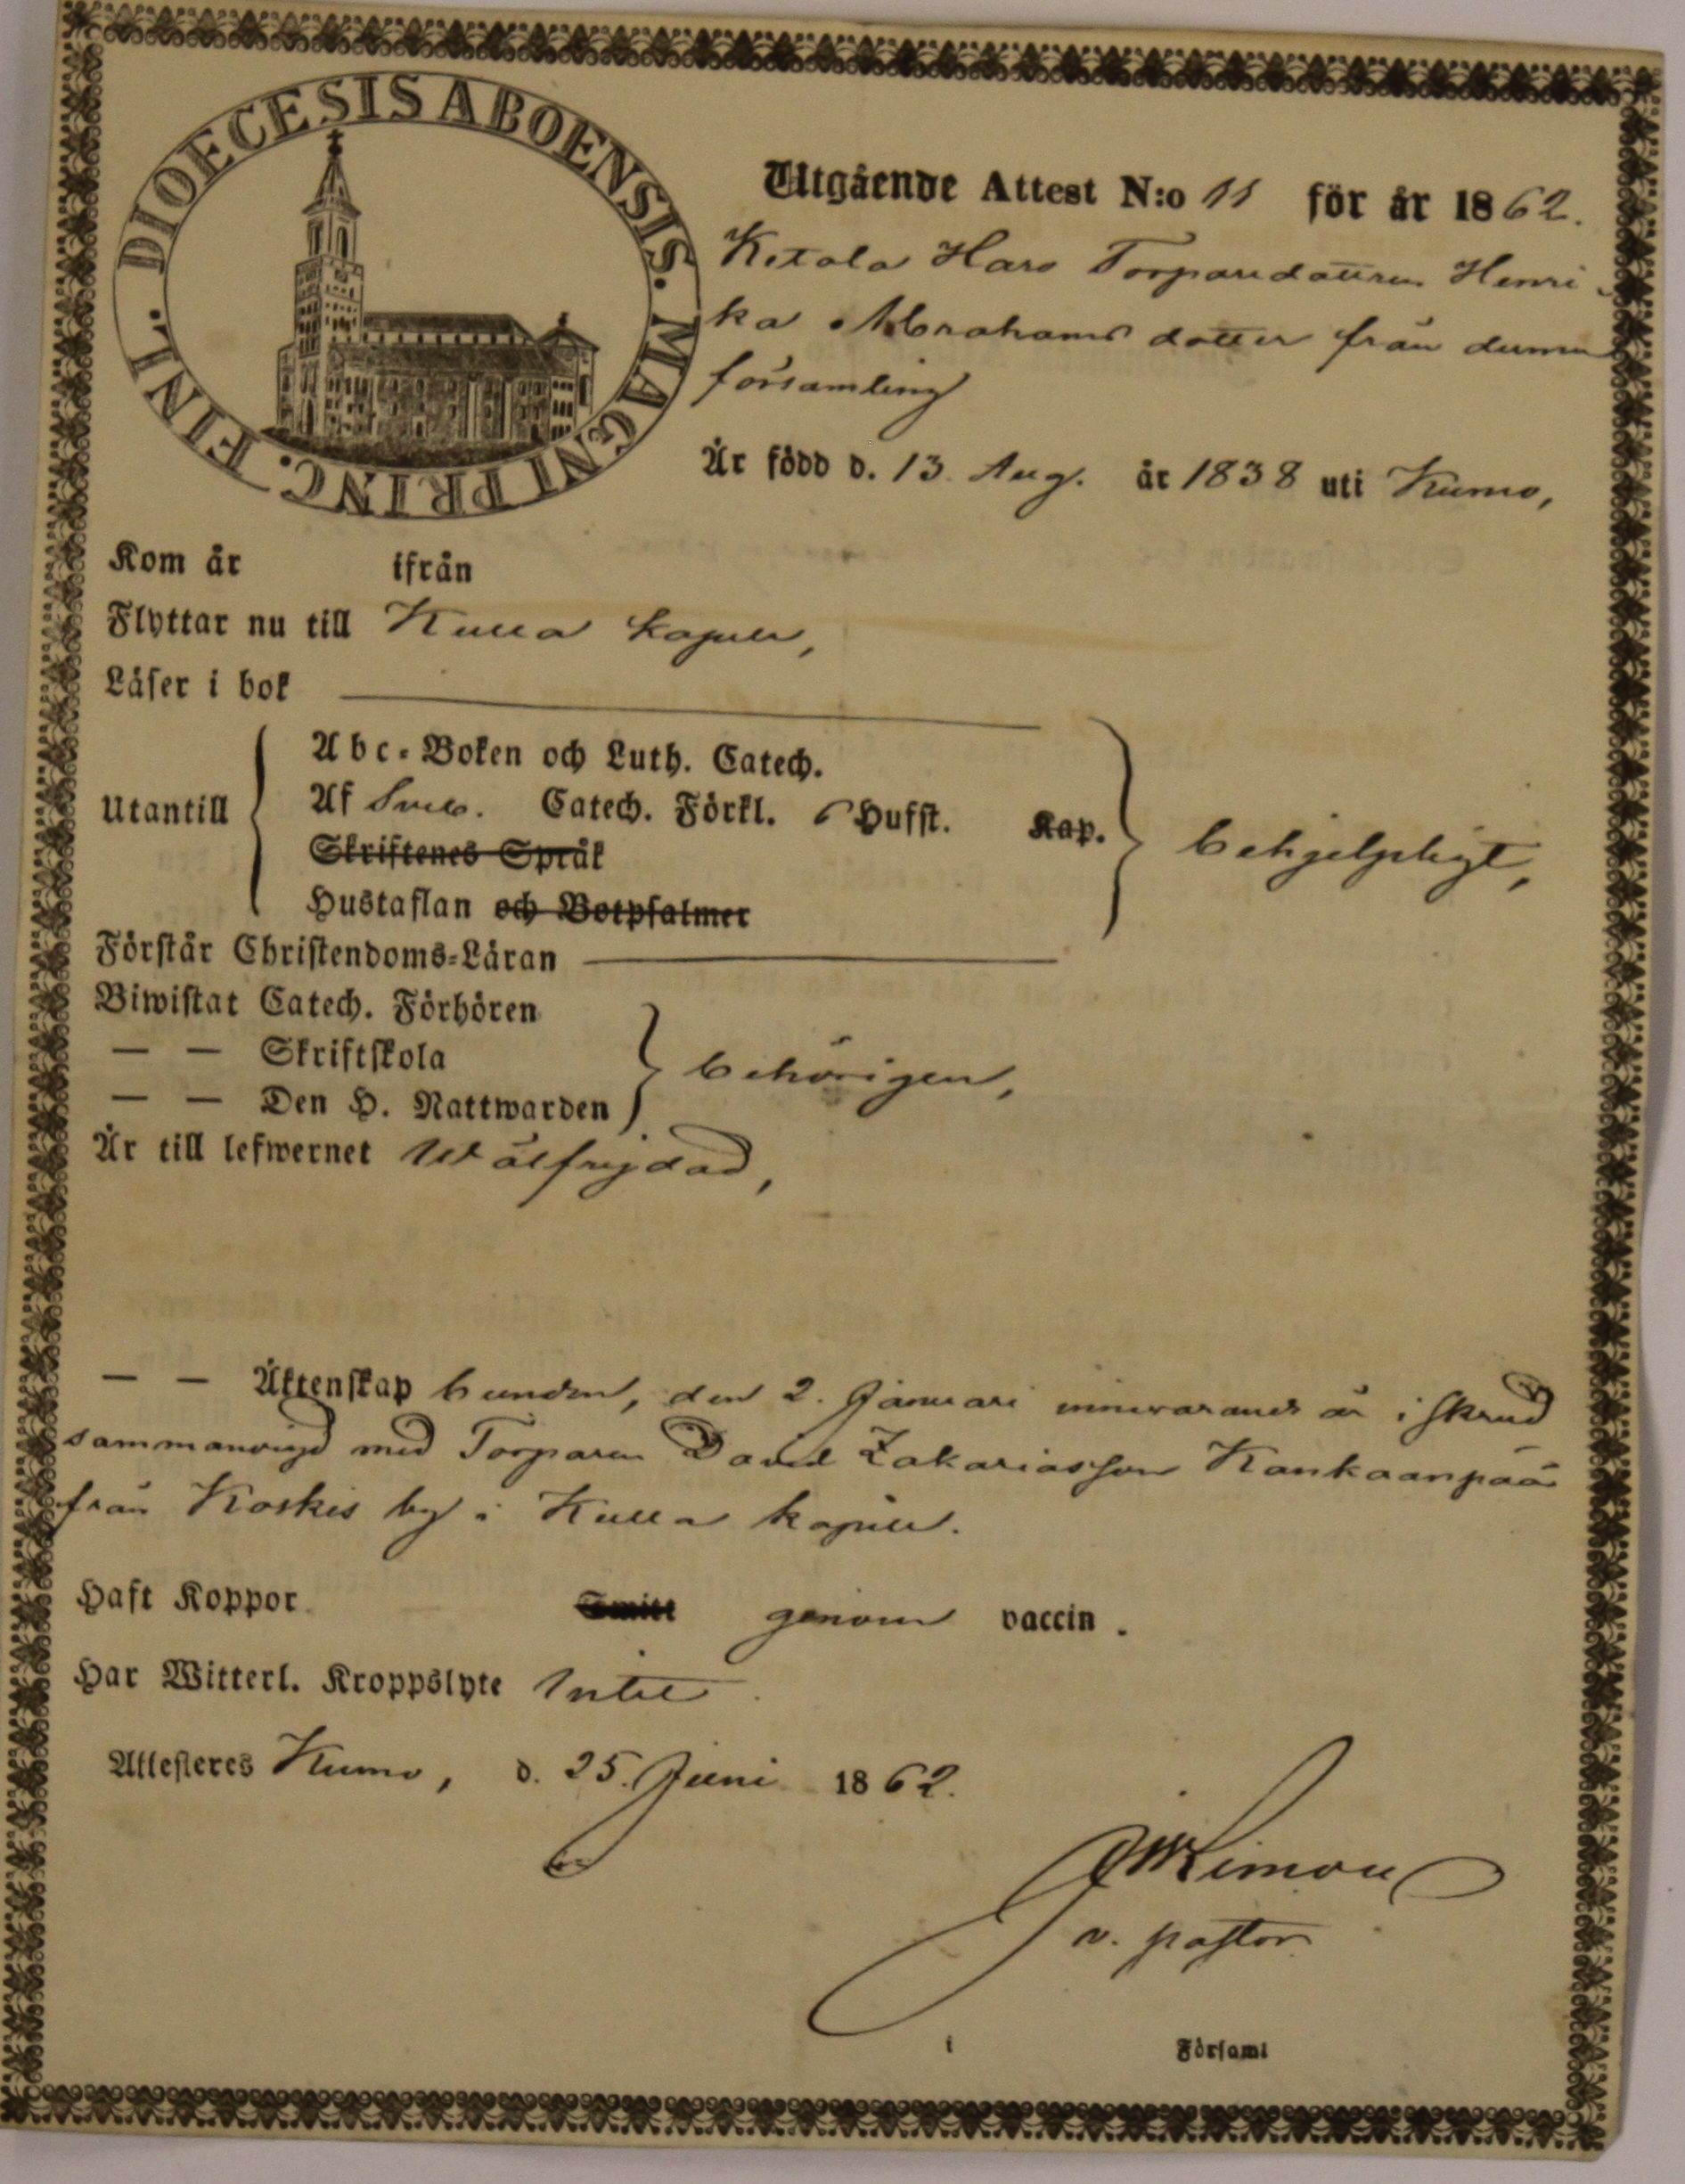 DIOECESIS ABOENSIS. MAGNI PRINC. FINL.
Utgående Attest N:o 11 för år 1862.
Ketola Hars Torparedottren Henri-
ka Abrahams dotter från denna
församling
Är född d. 13. Aug. år 1838 uti Kumo,
Kom år ifrån
Flyttar nu till Kulla kapell,
Läser i bok
Utantill
Abc-Boken och Luth. Catech.
Af Sveb. Catech. Förkl. 6 Hufst. Kap.
Skriftenes Språk
Hustaflan och Botpsalmer
behjelpligt,
Förstår Christendoms-Läran
Biwistat Catech. Förhören
— — Skriftskola
— — Den H. Nattwarden
behörigen,
Är till lefwernet Wälfrejdad,
— — Äktenskap bunden, den 2. Januari innevarande år i Skrud
sammanvigd med Torparen David Zakariasson Kankaanpää
från Koskis by i Kulla kapell.
Haft Koppor Smitt genom vaccin.
Har Witterl. Kroppslyte Intet.
Attesteres Kumo, d. 25. Juni 1862.
v. pastor
i Församl